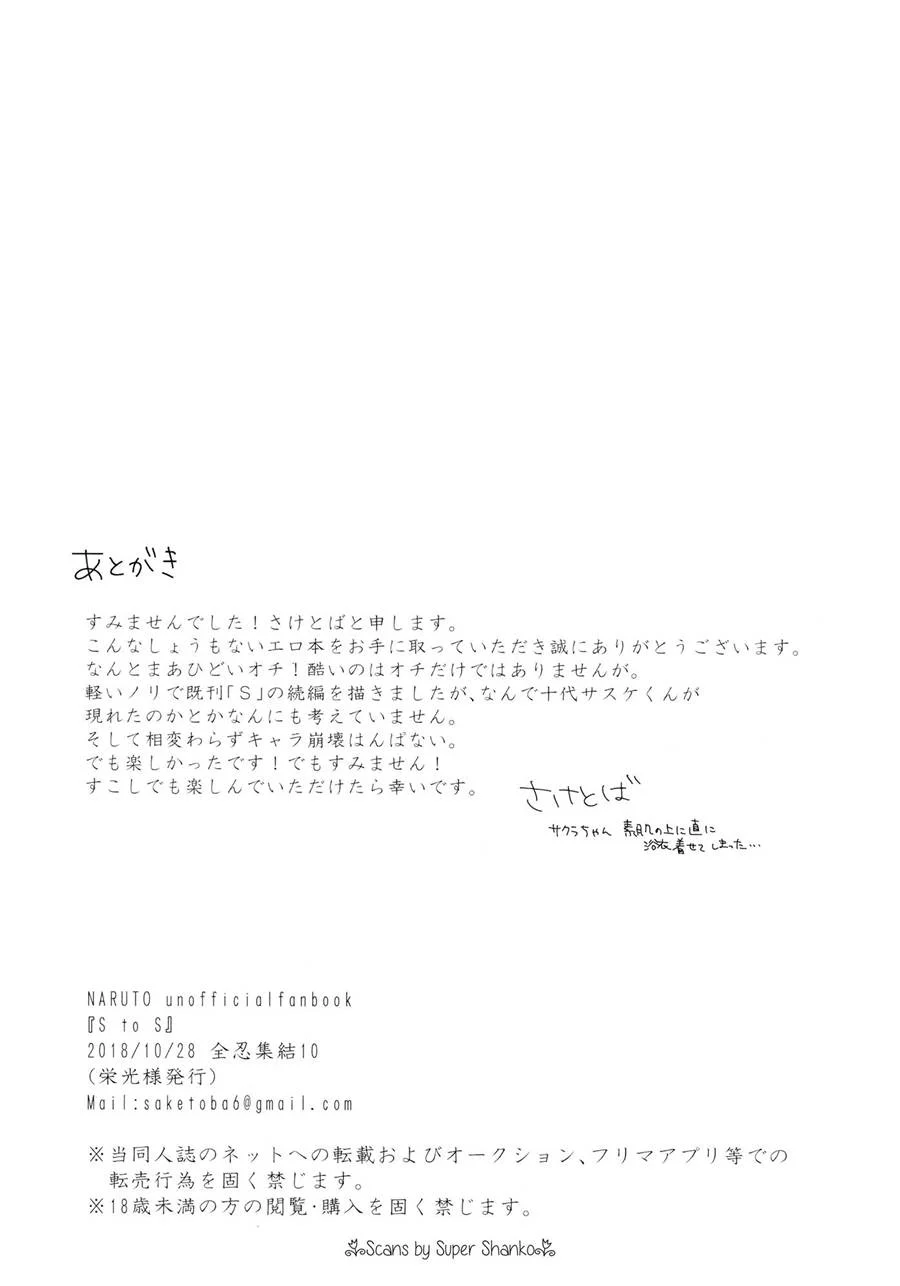 あとがき
すみませんでした！さけとばと申します。
こんなしょうもないエロ本をお手に取っていただき誠にありがとうございます。
なんとまあひどいオチ！酷いのはオチだけではありませんが。
軽いノリで既刊｢S｣の続編を描きましたが､なんで十代サスケくんが
現れたのかとかなんにも考えていません。
そして相変わらずキャラ崩壊はんぱない。
でも楽しかったです！でもすみません！
すこしでも楽しんでいただけたら幸いです。
さけとば
サクラちゃん 素肌の上に直に
浴衣着せてしまった…
NARUTO unofficialfanbook
『S to S』
2018/10/28 全忍集結10
(栄光様発行)
Mail:saketoba6@gmail.com
※当同人誌のネットへの転載およびオークション､フリマアプリ等での
転売行為を固く禁じます。
※18歳未満の方の閲覧･購入を固く禁じます。
Scans by Super Shanko